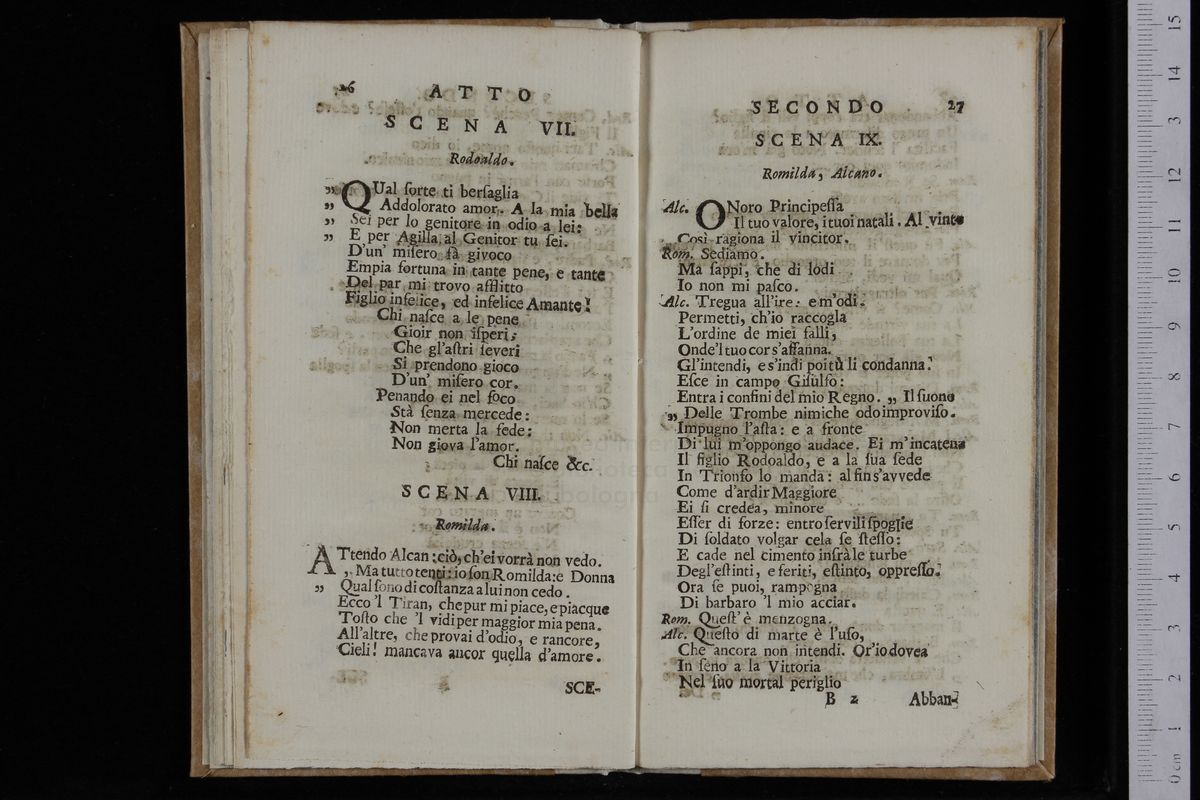 26 ATTO
SCENA VII.
Rodoaldo.
„ QUal ſorte ti berſaglia
„ Addolorato amor. A la mia bella
„ Sei per lo genitore in odio a lei:
„ E per Agilla al Genitor tu ſei.
D'un' miſero fà givoco
Empia fortuna in tante pene, e tante
Del par mi trovo afflitto
Figlio infelice, ed infelice Amante!
Chi naſce a le pene
Gioir non iſperi;
Che gl'aſtri ſeveri
Si prendono gioco
D'un' miſero cor.
Penando ei nel foco
Stà ſenza mercede:
Non merta la fede:
Non giova l'amor.
Chi naſce &c.
SCENA VIII.
Romilda.
ATtendo Alcan: ciò, ch'ei vorrà non vedo.
„ Ma tutto tenti: io ſon Romilda: e Donna
„ Qual ſono di coſtanza a lui non cedo.
Ecco 'l Tiran, che pur mi piace, e piacque
Toſto che 'l vidi per maggior mia pena.
All'altre, che provai d'odio, e rancore,
Cieli! mancava ancor quella d'amore.
SCE-
SECONDO 27
SCENA IX.
Romilda, Alcano.
Alc. ONoro Principeſſa
Il tuo valore, i tuoi natali. Al vinto
Cosi ragiona il vincitor.
Rom. Sediamo.
Ma ſappi, che di lodi
Io non mi paſco.
Alc. Tregua all'ire: e m'odi.
Permetti, ch'io raccogla
L'ordine de miei falli,
Onde'l tuo cor s'affanna.
Gl'intendi, e s'indi poi tù li condanna.
Eſce in campo Giſulfo:
Entra i confini del mio Regno. „ Il ſuono
„ Delle Trombe nimiche odo improviſo.
Impugno l'aſta: e a fronte
Di lui m'oppongo audace. Ei m'incatena
Il figlio Rodoaldo, e a la ſua ſede
In Trionfo lo manda: al fin s'avvede
Come d'ardir Maggiore
Ei ſi credea, minore
Eſſer di forze: entro ſervili ſpoglie
Di ſoldato volgar cela ſe ſteſſo:
E cade nel cimento infrà le turbe
Degl'eſtinti, e feriti, eſtinto, oppreſſo.
Ora ſe puoi, rampogna
Di barbaro 'l mio acciar.
Rom. Queſt' è menzogna.
Alc. Queſto di marte è l'uſo,
Che ancora non intendi. Or'io dovea
In ſeno a la Vittoria
Nel ſuo mortal periglio
B 2 Abban-